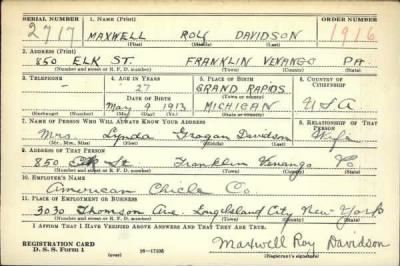 SERIAL NUMBER 1. NAME (Print) ORDER NUMBER
2717 MAXWELL ROY DAVIDSON 1916
(First) (Middle) (Last)
2. ADDRESS (Print)
850 ELK ST. FRANKLIN VENANGO PA.
(Number and street or R. F. D. number) (Town) (County) (State)
3. TELEPHONE 4. AGE IN YEARS 5. PLACE OF BIRTH 6. COUNTRY OF CITIZENSHIP
— 27 GRAND RAPIDS
DATE OF BIRTH (Town or county)
May 9 1913 MICHIGAN USA
(Exchange) (Number) (Mo.) (Day) (Yr.) (State or country)
7. NAME OF PERSON WHO WILL ALWAYS KNOW YOUR ADDRESS 8. RELATIONSHIP OF THAT PERSON
Mrs. Lynda Grogan Davidson Wife
(Mr., Mrs., Miss) (First) (Middle) (Last)
9. ADDRESS OF THAT PERSON
850 Elk St Franklin Venango
(Number and street or R. F. D. number) (Town) (County) (State)
10. EMPLOYER'S NAME
American Chicle Co
11. PLACE OF EMPLOYMENT OR BUSINESS
3030 Thomson Ave. Long Island City New York
(Number and street or R. F. D. number) (Town) (County) (State)
I AFFIRM THAT I HAVE VERIFIED ABOVE ANSWERS AND THAT THEY ARE TRUE.
REGISTRATION CARD
D. S. S. Form 1 (over) 16—17105 Maxwell Roy Davidson
(Registrant's signature)